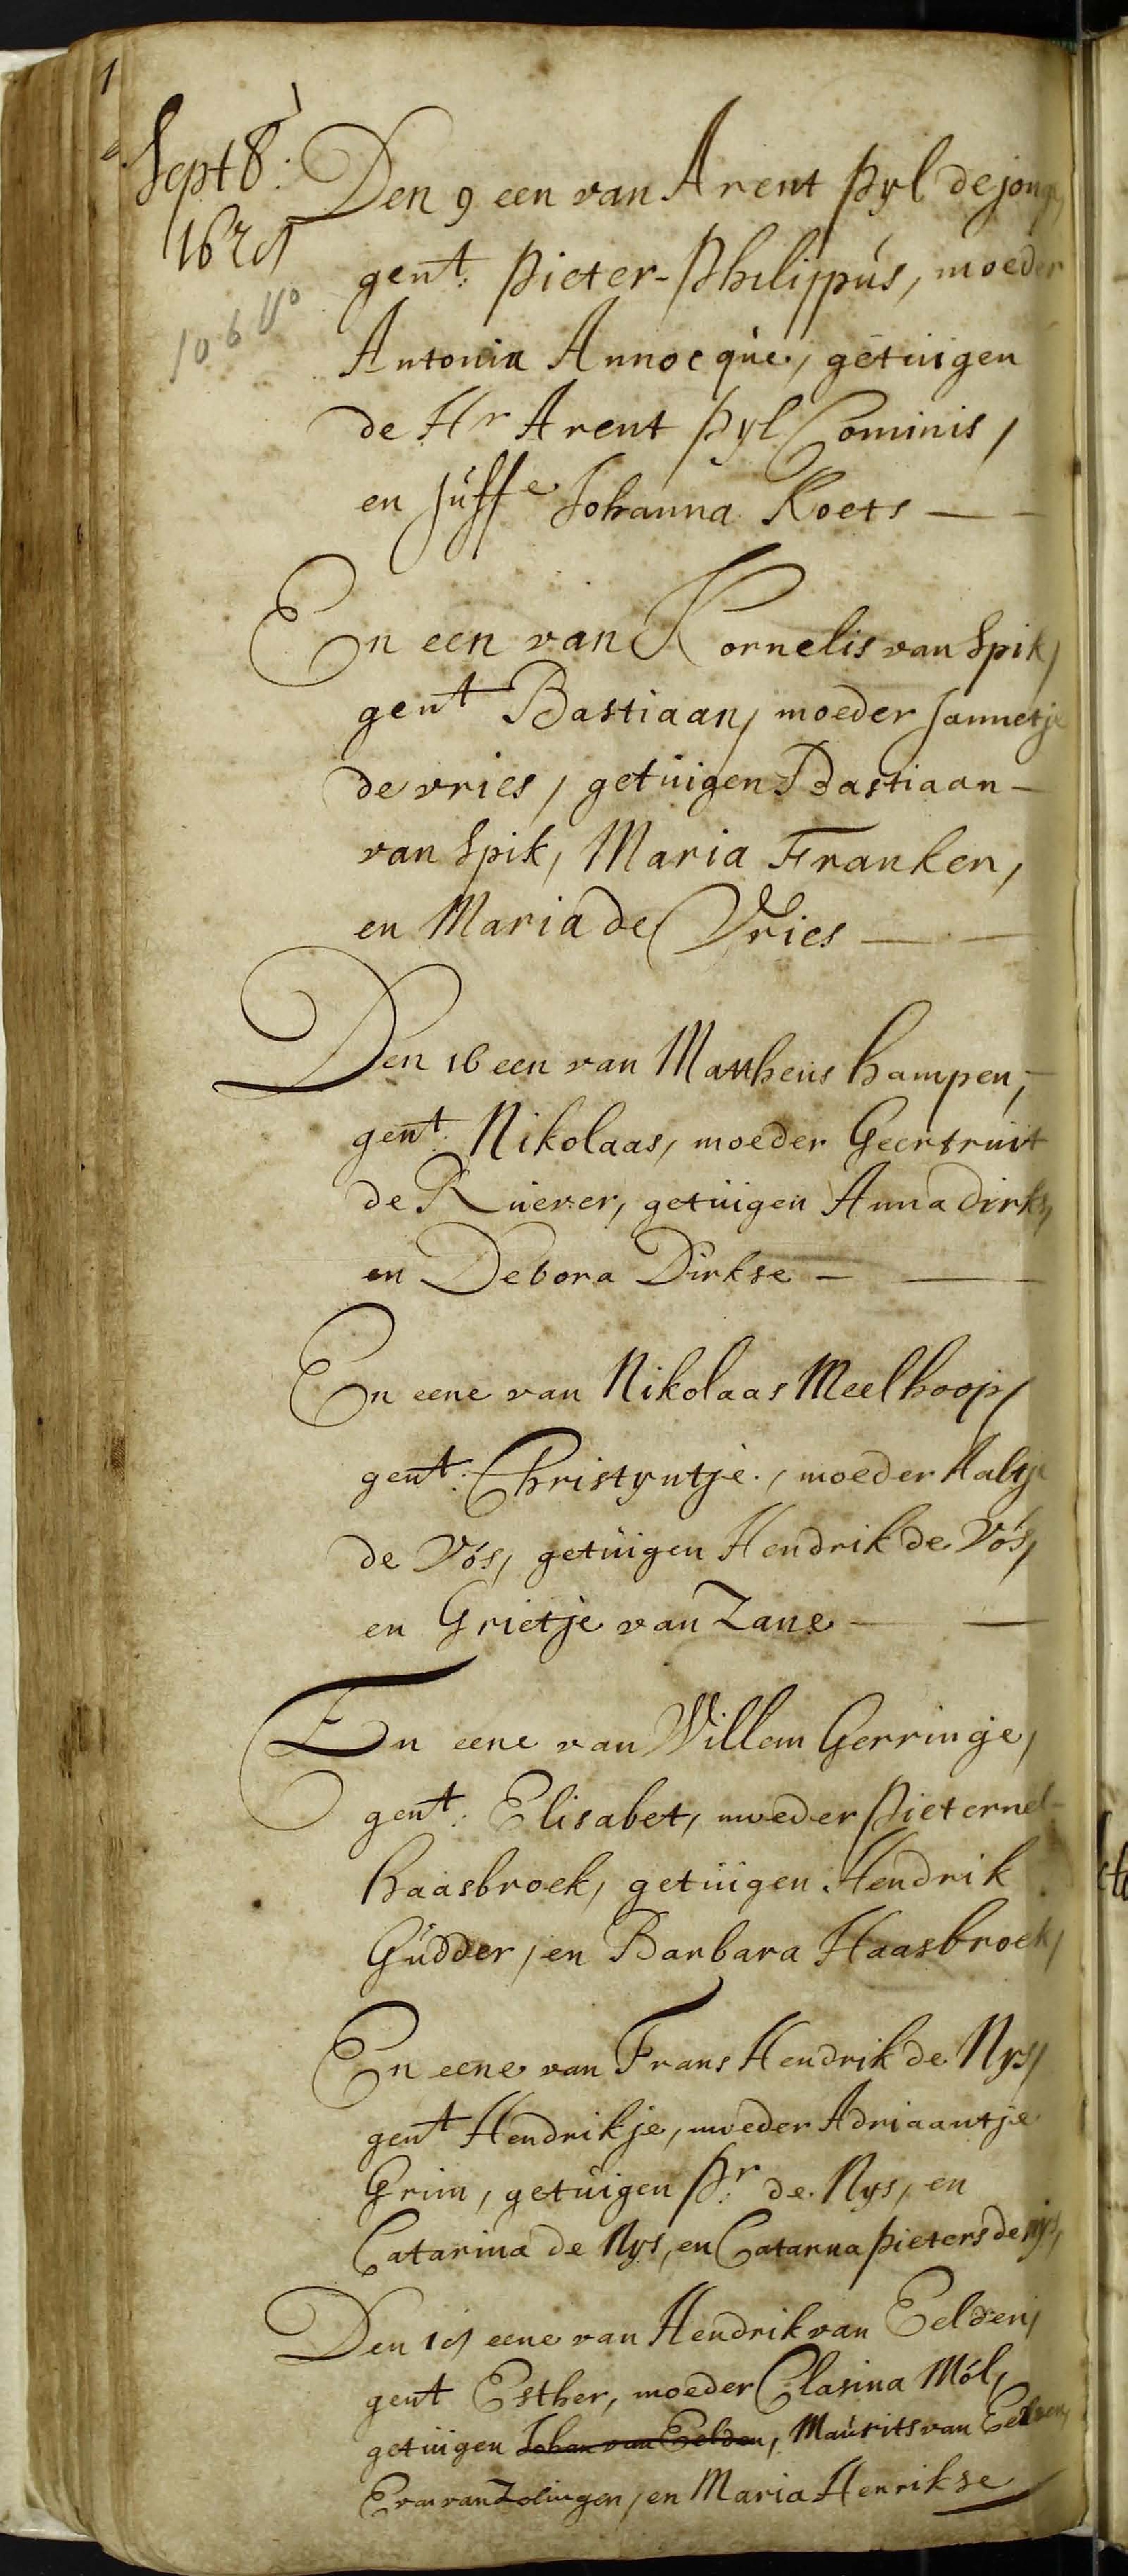 1
Sept 8.
Den 9 een van Arent Pyl de jong,
gent. Pieter-Philippús, moeder
Antonia Annocqúe, getúigen
de Hr Arent Pyl Cominis,
en Júffe Johanna Koets —
En een van Kornelis van Spik,
gent Bastiaan, moeder Jannetje
de vries, getúigen Bastiaan —
van Spik, Maria Franken,
en Maria de Vries — —
Den 16 een van Mattheus hampen,
gent. Nikolaas, moeder Geertruit
de Rúever, getúigen Anna dirks,
en Debora Dirkse — —
En eene van Nikolaas Meelhoop,
gent. Christyntje, moeder Aaltje
de Vós, getúigen Hendrik de Vós,
en Grietje van Zane — —
En eene van Willem Gerringe,
gent. Elisabet, moeder Pieternel-
haasbroek, getúigen Hendrik
Gúdder, en Barbara Haasbroek,
En eene van Frans Hendrik de Nys,
gent Hendrikje, moeder Adriaantje
Grim, getúigen Pr. de Nys, en
Catarina de Nys, en Catarina Pieters de nys,
Den eene van Hendrik van Eelden,
gent Esther, moeder Clasina Mól,
getúigen Johan van Eelden, Maúrits van Eelden,
Eva van Zolingen, en Maria Henrikse